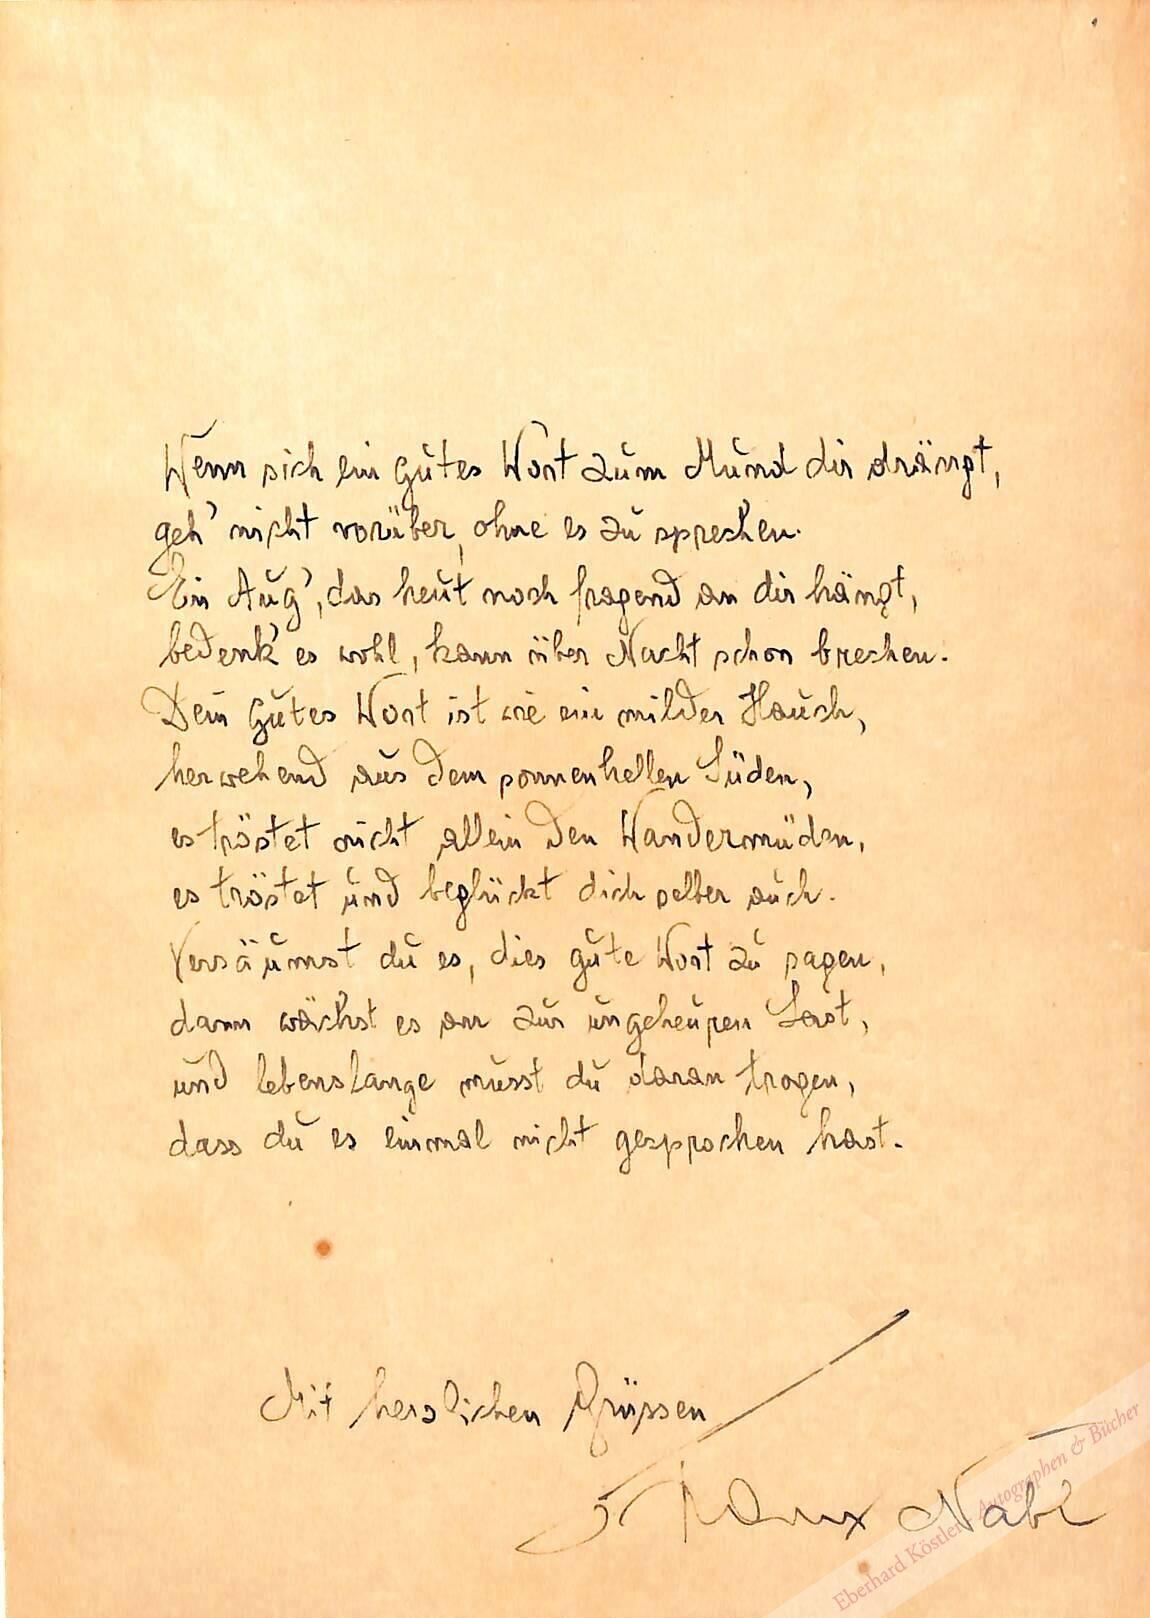 Wenn sich ein gutes Wort zum Mund dir drängt,
geh' nicht vorüber, ohne es zu sprechen.
Ein Aug', das heut noch fragend an dir hängt,
bedenk' es wohl, kann über Nacht schon brechen.
Dein gutes Wort ist wie ein milder Hauch,
herwehend aus dem sonnenhellen Süden,
es tröstet nicht allein den Wandermüden,
es tröstet und beglückt dich selber auch.
Versäumst du es, dies gute Wort zu sagen,
dann wächst es an zur ungeheuren Last,
und lebenslange musst du daran tragen,
dass du es einmal nicht gesprochen hast.
Mit herzlichen Grüssen
Franz Nabl
Eberhard Köstler Autographen & Bücher